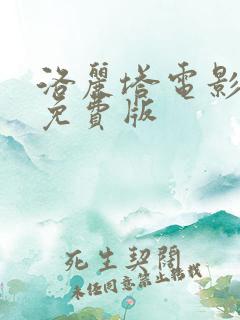 洛麗塔電影
免費版
死生契闊
未经同意禁止转载